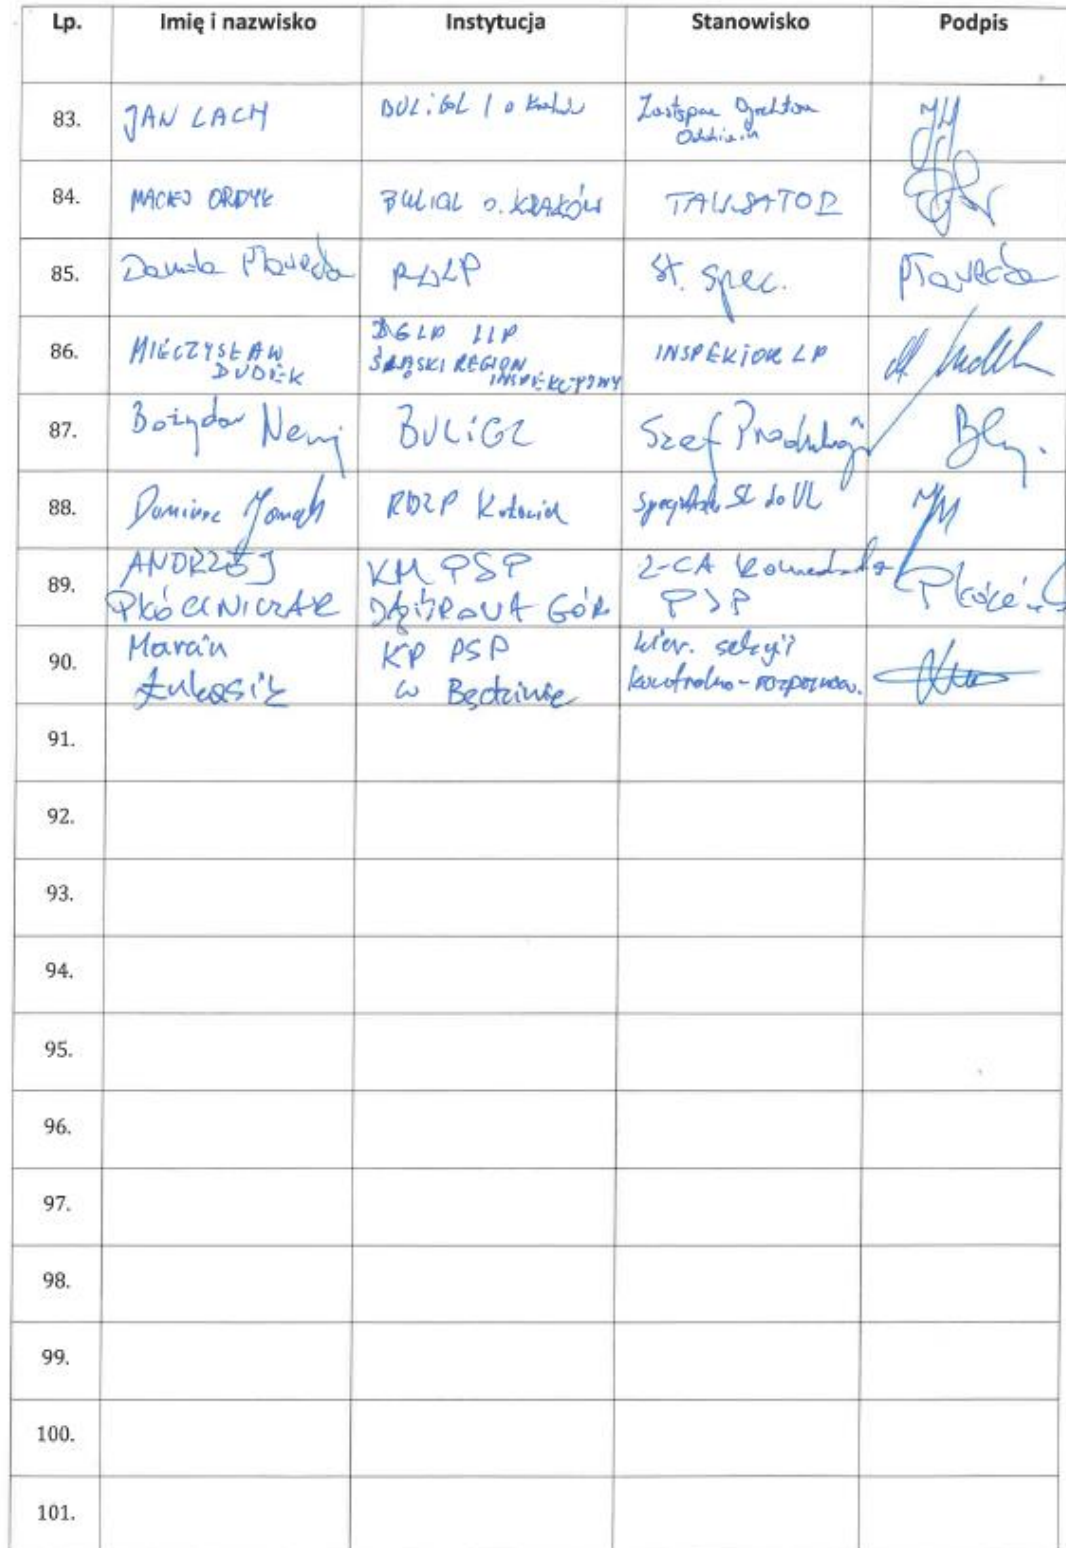 Lp. Imię i nazwisko Instytucja Stanowisko Podpis
83. JAN LACH BULiGL / o Kraków Zastępca Dyrektora
Oddziału
84. MACIEJ ORDYK BULIGL o. KRAKÓW TAKSATOR
85. Danuta Pławecka RDLP St. spec. Pławecka
86. MIECZYSŁAW
DUDEK
DGLP
ŚLĄSKI REGION
INSPEKCYJNY
INSPEKTOR LP
87. Bożydar BULiGL Szef Produkcji
88. RDLP Katowice
89. ANDRZEJ
PŁÓCINICZAK
KM PSP
DĄBROWA GÓR
Z-CA Komendanta
PSP
90. Marcin
Łukasik
KP PSP
w Będzinie
kier. sekcji
kontrolno-rozpoznaw.
91.
92.
93.
94.
95.
96.
97.
98.
99.
100.
101.